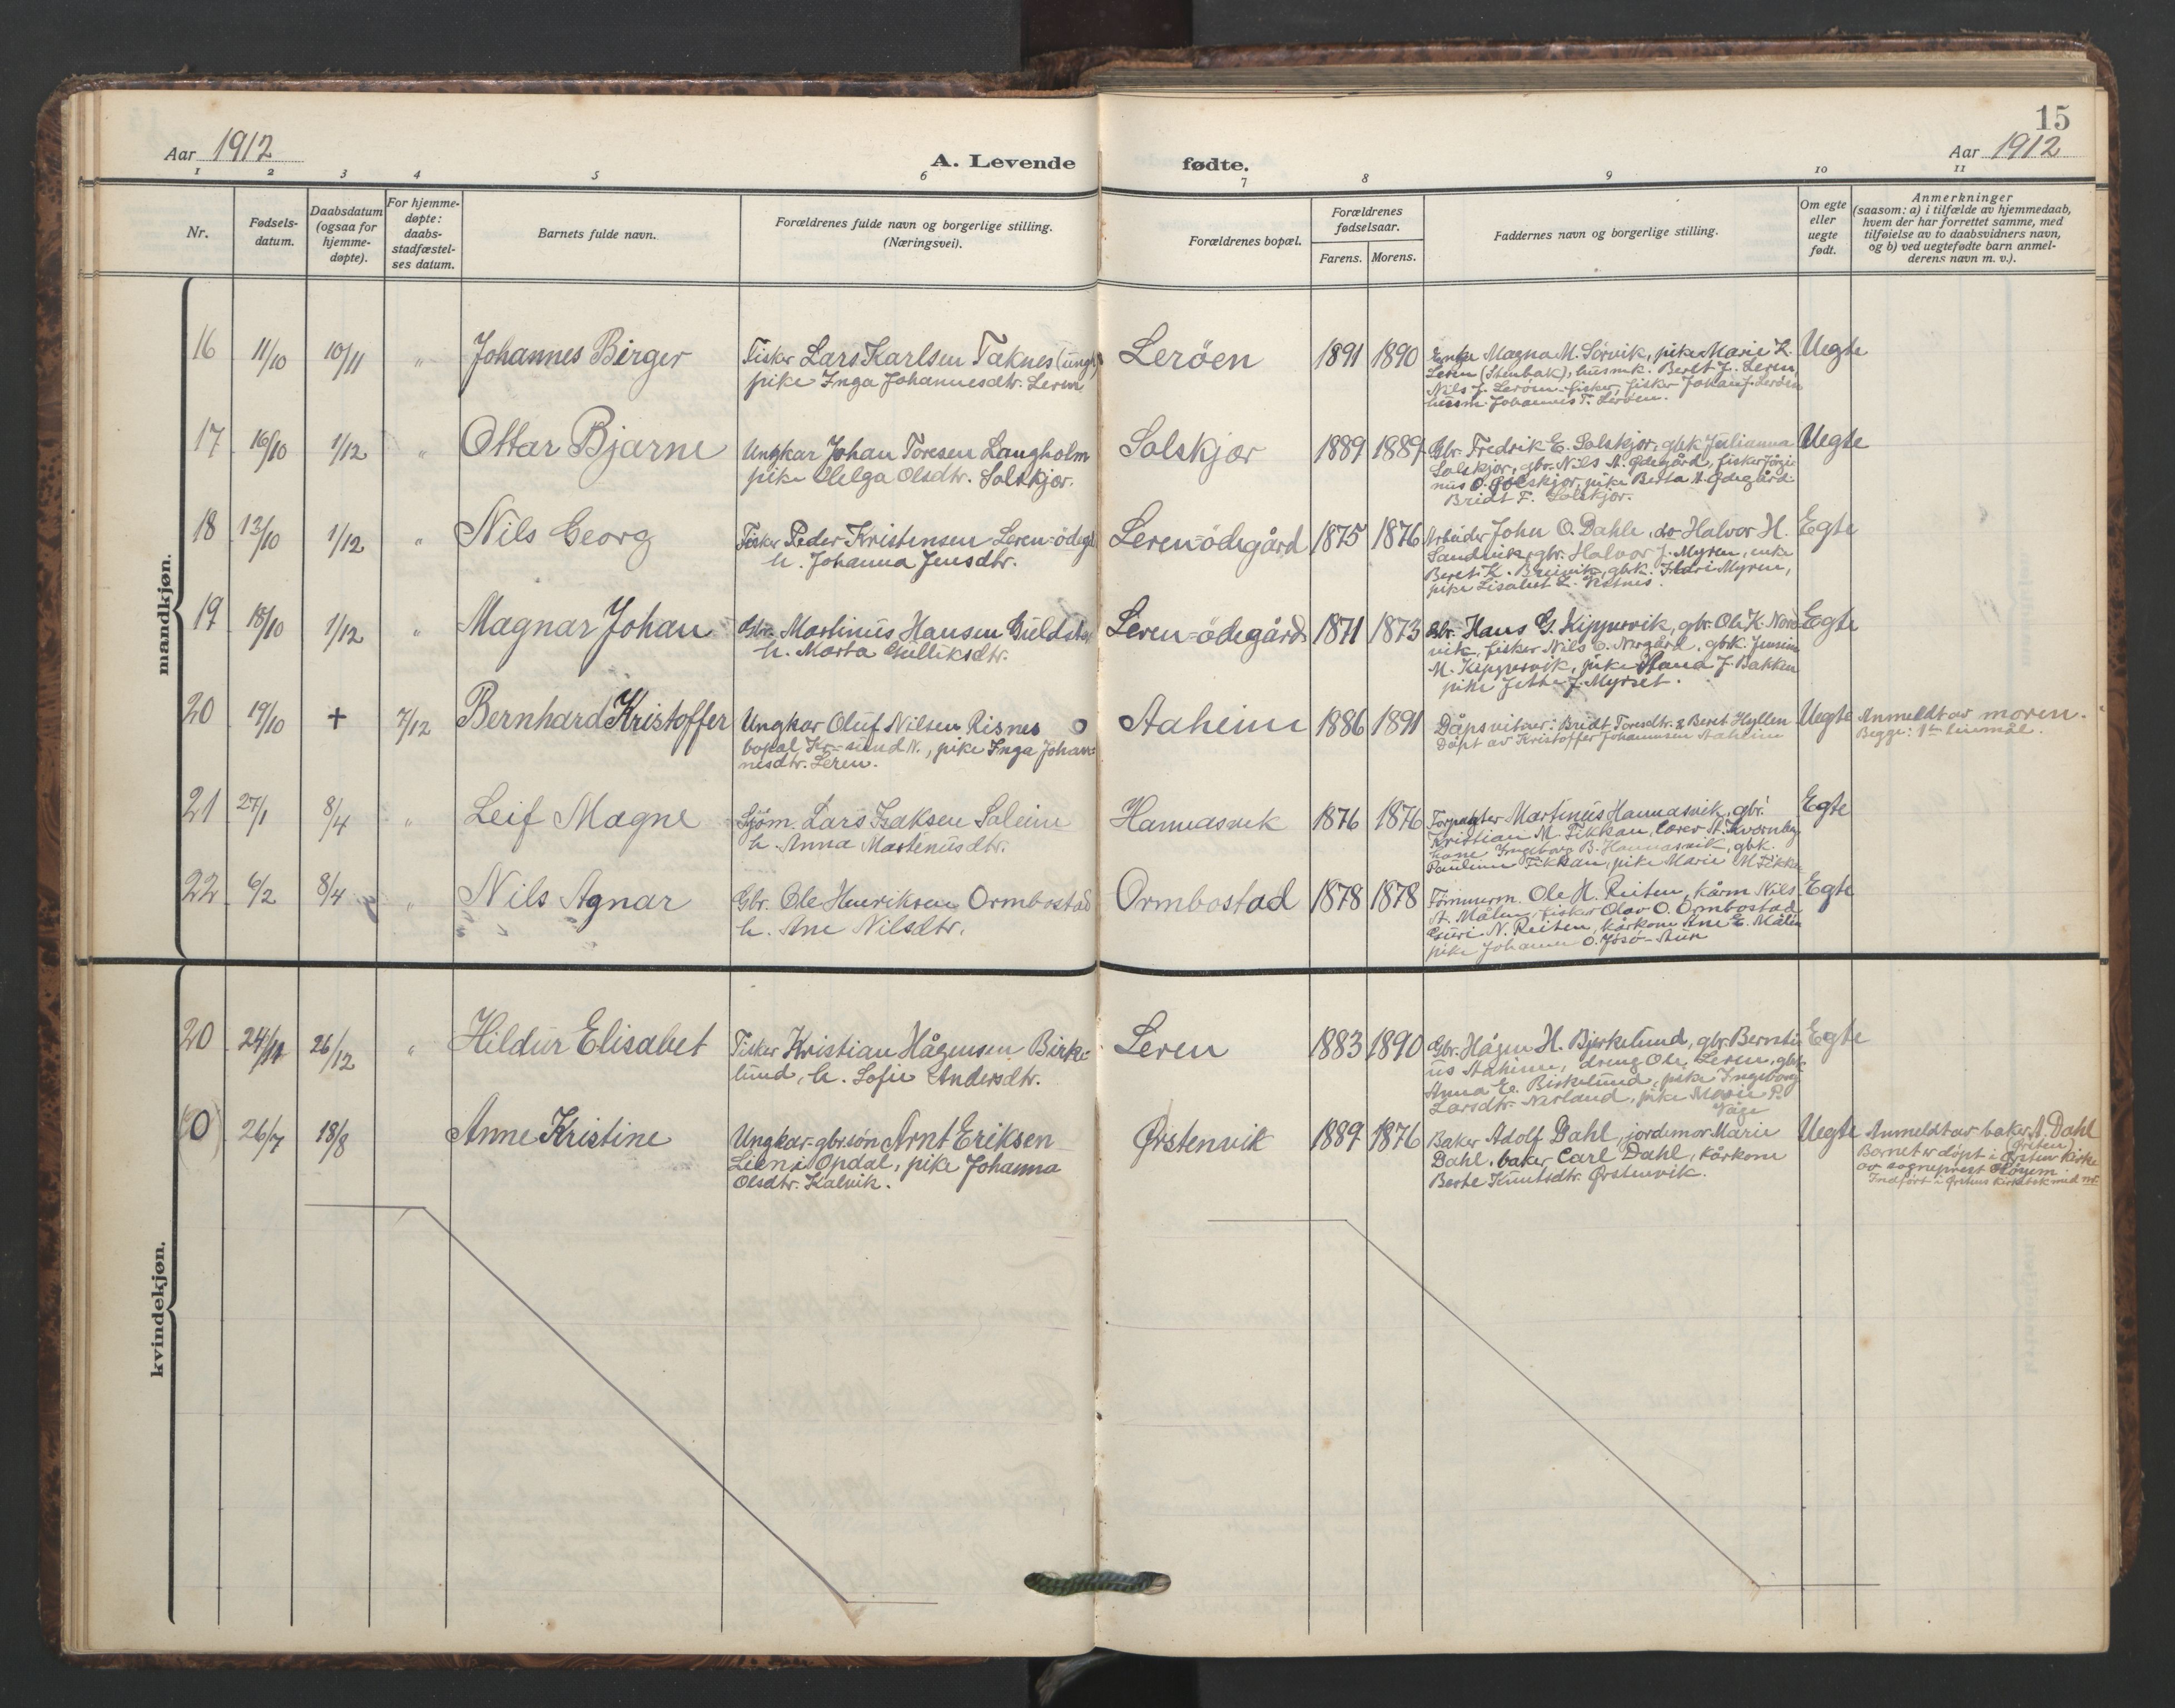 15
Aar 1912
A. Levende fødte.
Aar 1912
1 2 3 4 5 6 7 8 9 10 11
Nr.
Fødsels-
datum.
Daabsdatum
(ogsaa for
hjemme-
døpte).
For hjemme-
døpte:
daabs-
stadfæstel-
ses datum.
Barnets fulde navn.
Forældrenes fulde navn og borgerlige stilling.
(Næringsvei).
Forældrenes bopæl.
Forældrenes
fødselsaar.
Farens. Morens.
Faddernes navn og borgerlige stilling.
Om egte
eller
uegte
født.
Anmerkninger
(saasom: a) i tilfælde av hjemmedaab,
hvem der har forrettet samme, med
tilføielse av to daabsvidners navn,
og b) ved uegtefødte barn anmel-
derens navn m. v.).
mandkjøn.
16 11/10 10/11 " Johannes Birger
Fisker Lars Karlsen Taknes (ungk)
pike Inga Johannesdtr. Leren
Leröen 1891 1890
Enke Magna M. Sörvik, pike Marie L.
Leren (Stenbak), husmk. Beret J. Leren,
Nils J. Leröen fisker, fisker Johan J. Leröen
husm. Johannes T. Leröen.
Uegte
17 16/10 1/12 " Ottar Bjarne
Ungkar Johan Toresen Langholm
pike Helga Olsdtr. Solskjor.
Solskjor 1889 1889
Gbr. Fredrik E. Solskjor, gbk Julianna
Solskjor, gbr. Nils A. Ødegård, fisker Jörgi-
nus O. Solskjor, pike Berta A. Ødegård
Bridt F. Solskjor.
Uegte
18 13/10 1/12 " Nils Georg
Fisker Peder Kristensen Leren-ödegd
h. Johanna Jensdtr.
Leren-ödegård 1875 1876
Arbeider John O. Dahle, do Halvor H.
Sandvik, gbr. Halvor J. Myren, enke
Beret K. Breivik, gbk. Ildri Myren,
pike Lisabet L.
Egte
19 18/10 1/12 " Magnar Johan
Gbr. Martinus Hansen
h. Marta Gulliksdtr.
Leren-ödegård 1871 1873
Gbr. Hans G. Kippervik, gbr. Ole K. Nord-
vik, fisker Nils E. Nergård, gbk.
M. Kippervik, pike J. Bakken
pike J. Myrset.
Egte
20 19/10 + 7/12 Bernhard Kristoffer
Ungkar Oluf Nilsen Risnes
bopæl Kr-sund N., pike Inga Johan-
nesdtr. Leren.
Aaheim 1886 1891
Dåpsvitner: Bridt Toresdtr. & Beret Hyllen
Döpt av Kristoffer Johannesen Aaheim
Uegte
Anmeldt av moren.
Begge: 1ste leiermål.
21 27/1 8/4 " Leif Magne
Sjöm. Lars Isaksen Soleim
h. Anna Martinusdtr.
Hannasvik 1876 1876
Forpagter Martinus Hannasvik, gbr.
Kristian M. Fikkan, lærer A.
kone Ingeborg B. Hannasvik, gbk.
Pauline Fikkan, pike Marie M. Fikkan
Egte
22 6/2 8/4 " Nils Agnar
Gbr. Ole Henriksen Ormbostad
h. Ane Nilsdtr.
Ormbostad 1878 1878
Tömmerm. Ole H. Reiten, kårm Nils
A. Målen, fisker Olav O. Ormbostad
Guri N. Reiten, kårkone Ane E. Målen
pike Johanne O. Jösö-Aure
Egte
kvindekjøn.
20 24/11 26/12 " Hildur Elisabet
Fisker Kristian Hågensen Birke-
lund, h. Sofie Andersdtr.
Leren 1883 1890
Gbr. Hågen H. Bjerkelund, gbr. Bernti-
us Aaheim, dreng Ole Leren, gbk
Anna E. Birkelund, pike Ingeborg
Larsdtr. Nerland, pike Marie P.
Våge
Egte
(0) 26/7 18/8 Anne Kristine
Ungkar-gbr.sön Arnt Eriksen
Lien i Opdal, pike Johanna
Olsdtr. Kalvik.
Ørstenvik 1889 1876
Baker Adolf Dahl, jordemor Marie
Dahl, baker Carl Dahl, kårkone
Berte Knutsdtr. Ørstenvik.
Uegte
Anmeldt av baker A. Dahl
(Örsten)
Barnet er döpt i Örsten kirke
av sogneprest
Indfört i Örstens kirkebok med nr.